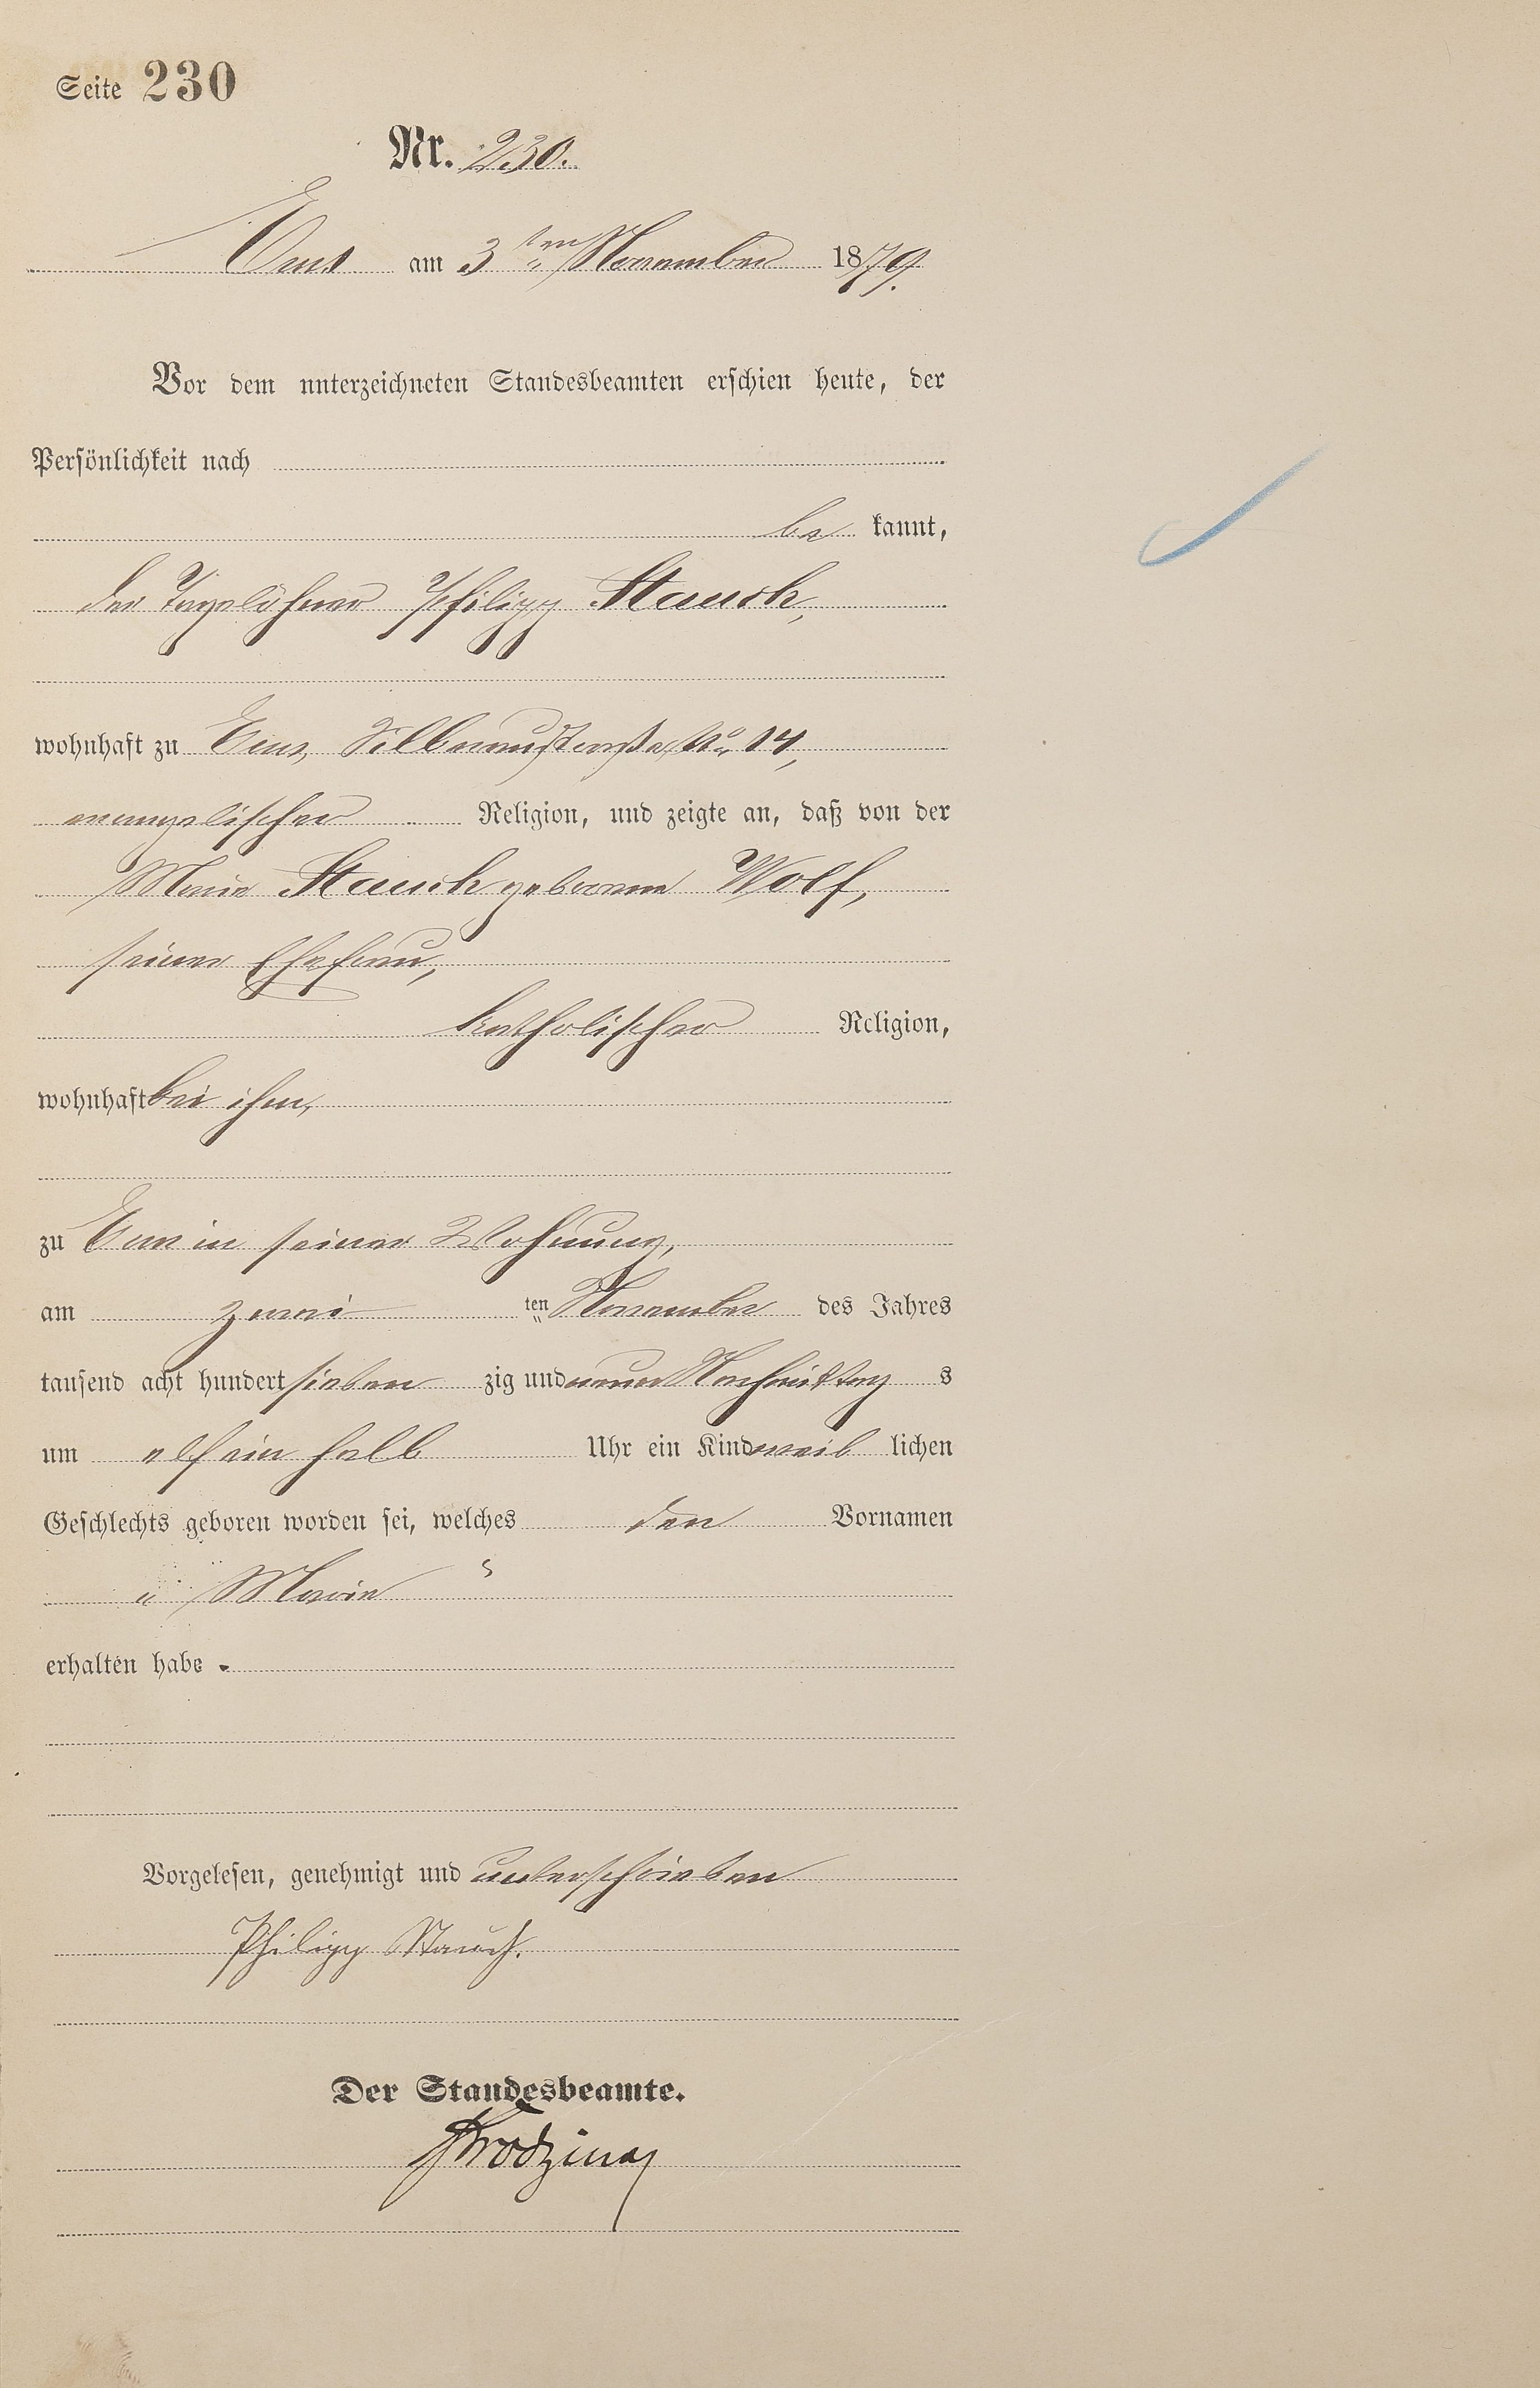 Seite 230
Nr. 230.
Ems am 3ten November 1879.
Vor dem unterzeichneten Standesbeamten erschien heute, der
Persönlichkeit nach
be kannt,
der Tagelöhner Philipp Stauch,
wohnhaft zu Ems, Silberaustraße No 14,
evangelischer Religion, und zeigte an, daß von der
Marie Stauch geborene Wolf,
seiner Ehefrau,
katholischer Religion,
wohnhaft bei ihm,
zu Ems in seiner Wohnung,
am zwei ten November des Jahres
tausend acht hundert sieben zig und neun Nachmittag s
um elf ein halb Uhr ein Kind weib lichen
Geschlechts geboren worden sei, welches den Vornamen
„ Marie “
erhalten habe.
Vorgelesen, genehmigt und unterschrieben
Philipp Stauch.
Der Standesbeamte.